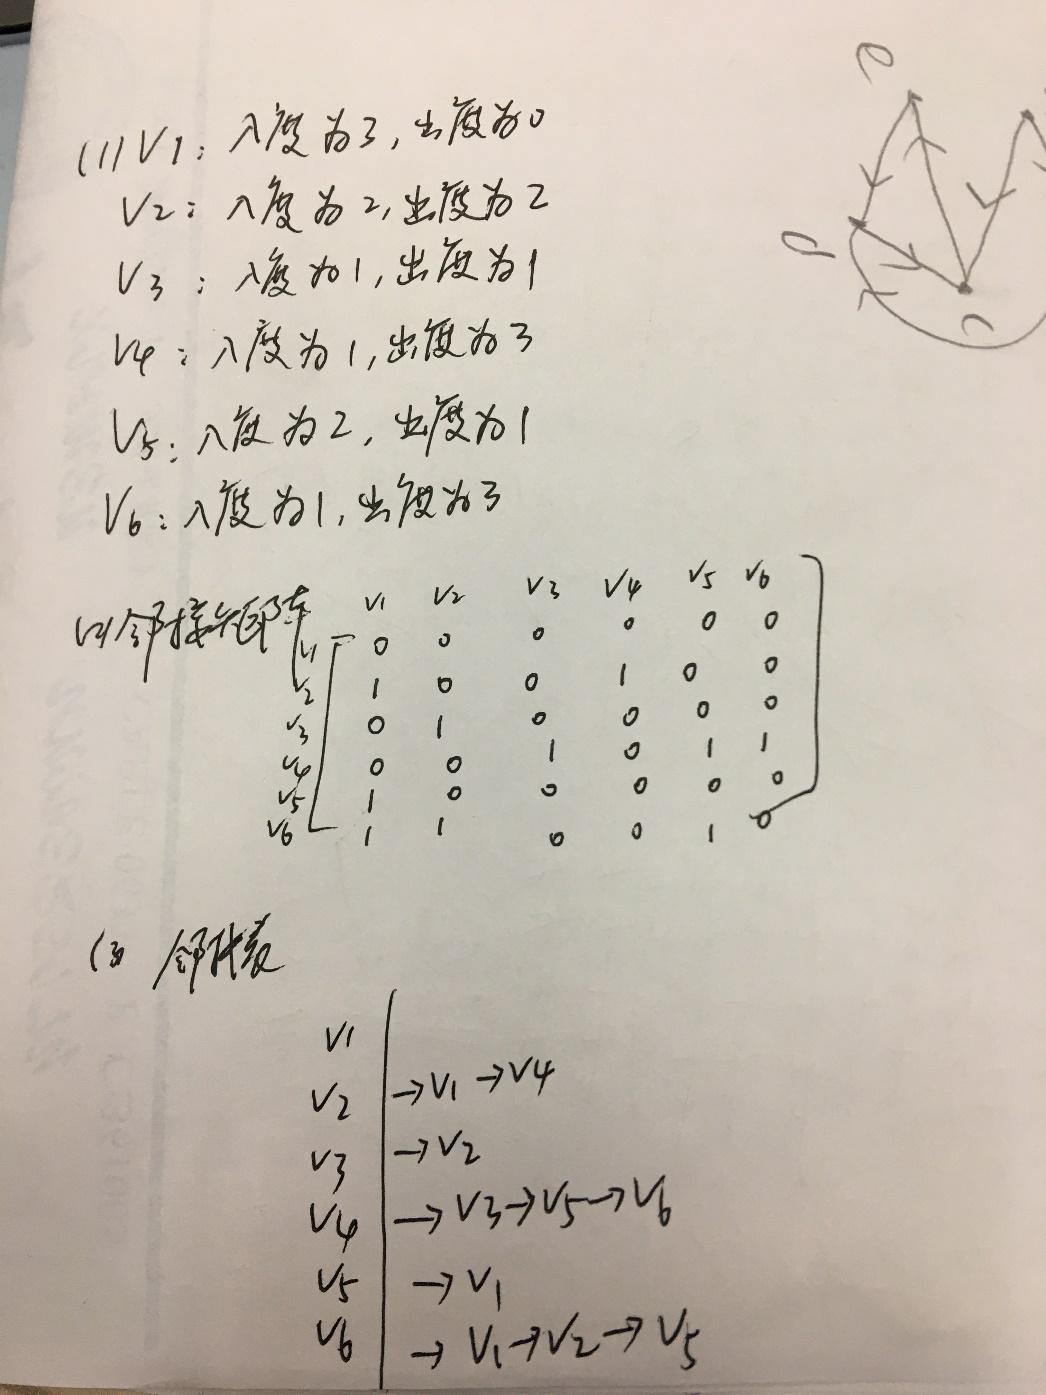 (1) V1: 入度为3, 出度为0
V2: 入度为2, 出度为2
V3: 入度为1, 出度为1
V4: 入度为1, 出度为3
V5: 入度为2, 出度为1
V6: 入度为1, 出度为3
(2) 邻接矩阵
V1 V2 V3 V4 V5 V6
V1 0 0 0 0 0 0
V2 1 0 0 1 0 0
V3 0 1 0 0 0 0
V4 0 0 1 0 1 1
V5 1 0 0 0 0 0
V6 1 1 0 0 1 0
(3) 邻接表
V1
V2 →V1→V4
V3 →V2
V4 →V3→V5→V6
V5 →V1
V6 →V1→V2→V5
e
d
c